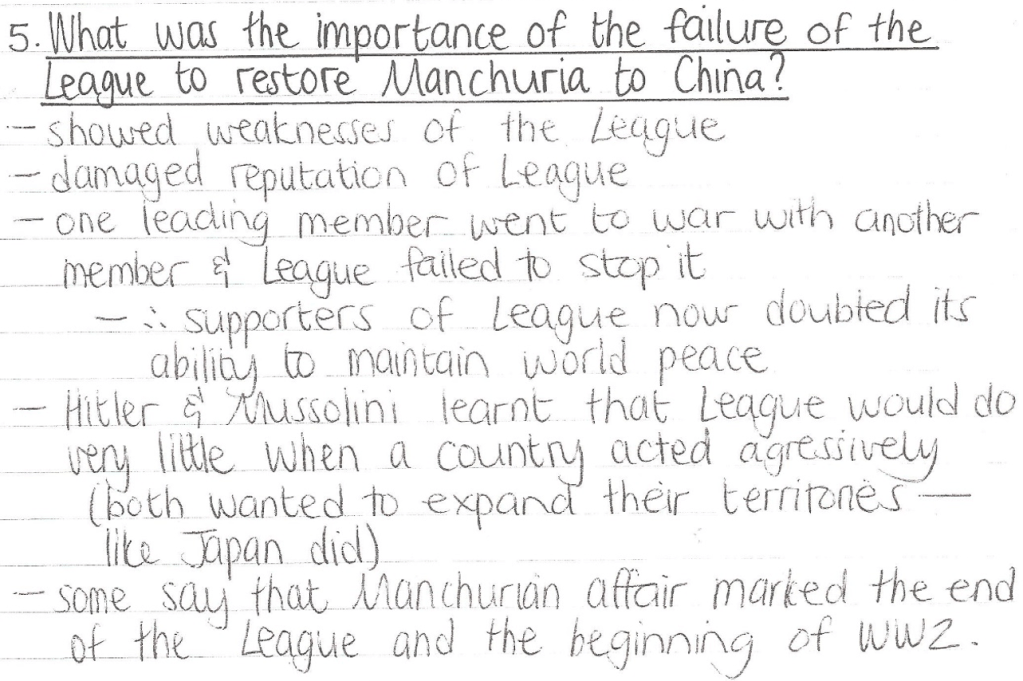 5. What was the importance of the failure of the
League to restore Manchuria to China?
- showed weaknesses of the League
- damaged reputation of League
- one leading member went to war with another
member & League failed to stop it
- ∴ supporters of League now doubted its
ability to maintain world peace
- Hitler & Mussolini learnt that League would do
very little when a country acted agressively
(both wanted to expand their territories -
like Japan did)
- some say that Manchurian affair marked the end
of the League and the beginning of WW2.